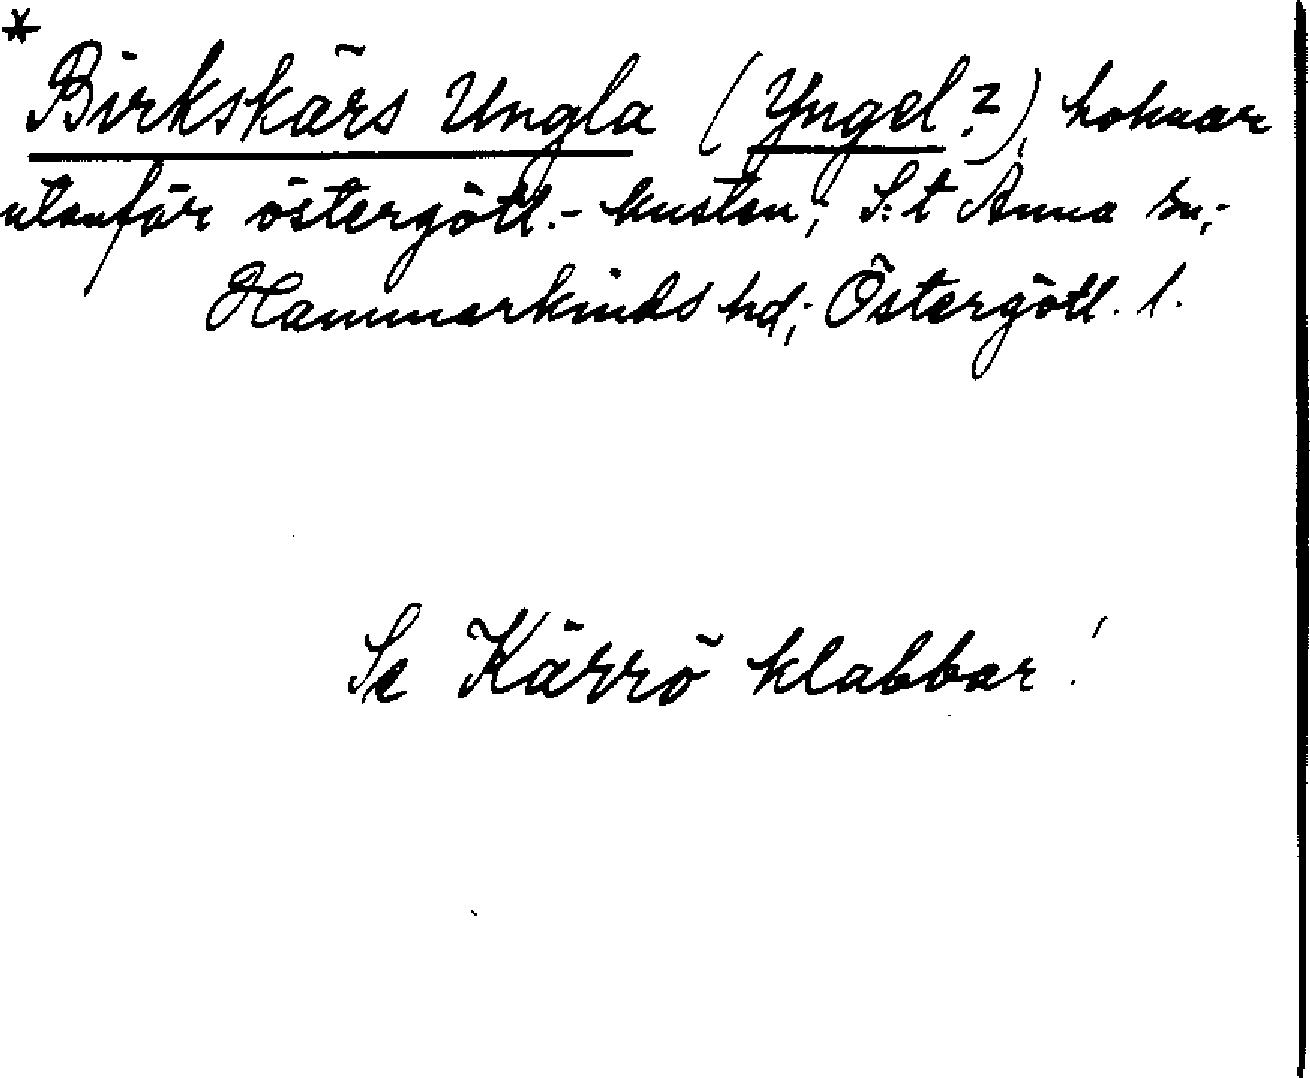 *
Birkskärs Ungla (Yngel?), holmar
utanför östergötl.-kusten; S:t Anna sn,-
Hammarkinds hd; Östergötl. l.
Se Kärrö klabbar!